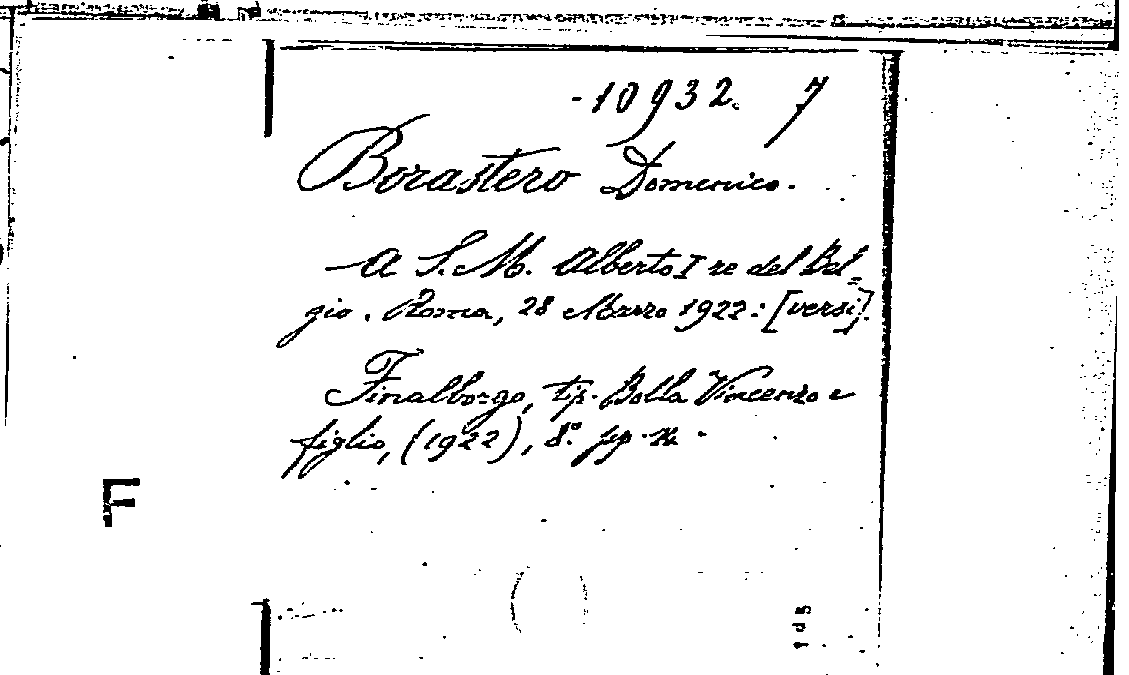 10932. 7
Borastero Domenico.
A S. M. Alberto I re del Bel=
gio. Roma, 28 Marzo 1922: [versi].
Finalborgo, tip. Bolla Vincenzo e
figlio, (1922), 8° pp.
F
( )